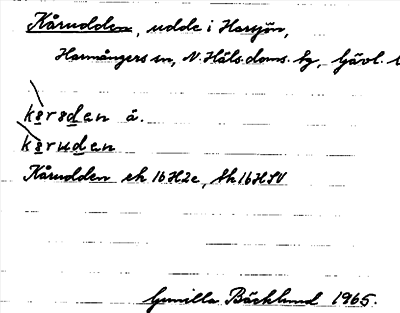 Kårudden, udde i Harsjön,
Harmångers sn, N. Häls. doms. sg, Gävl.
kårsdan å.
kårudan
Kårudden ek 16H2e, tk 16HSV
Gunilla Bäcklund 1965.